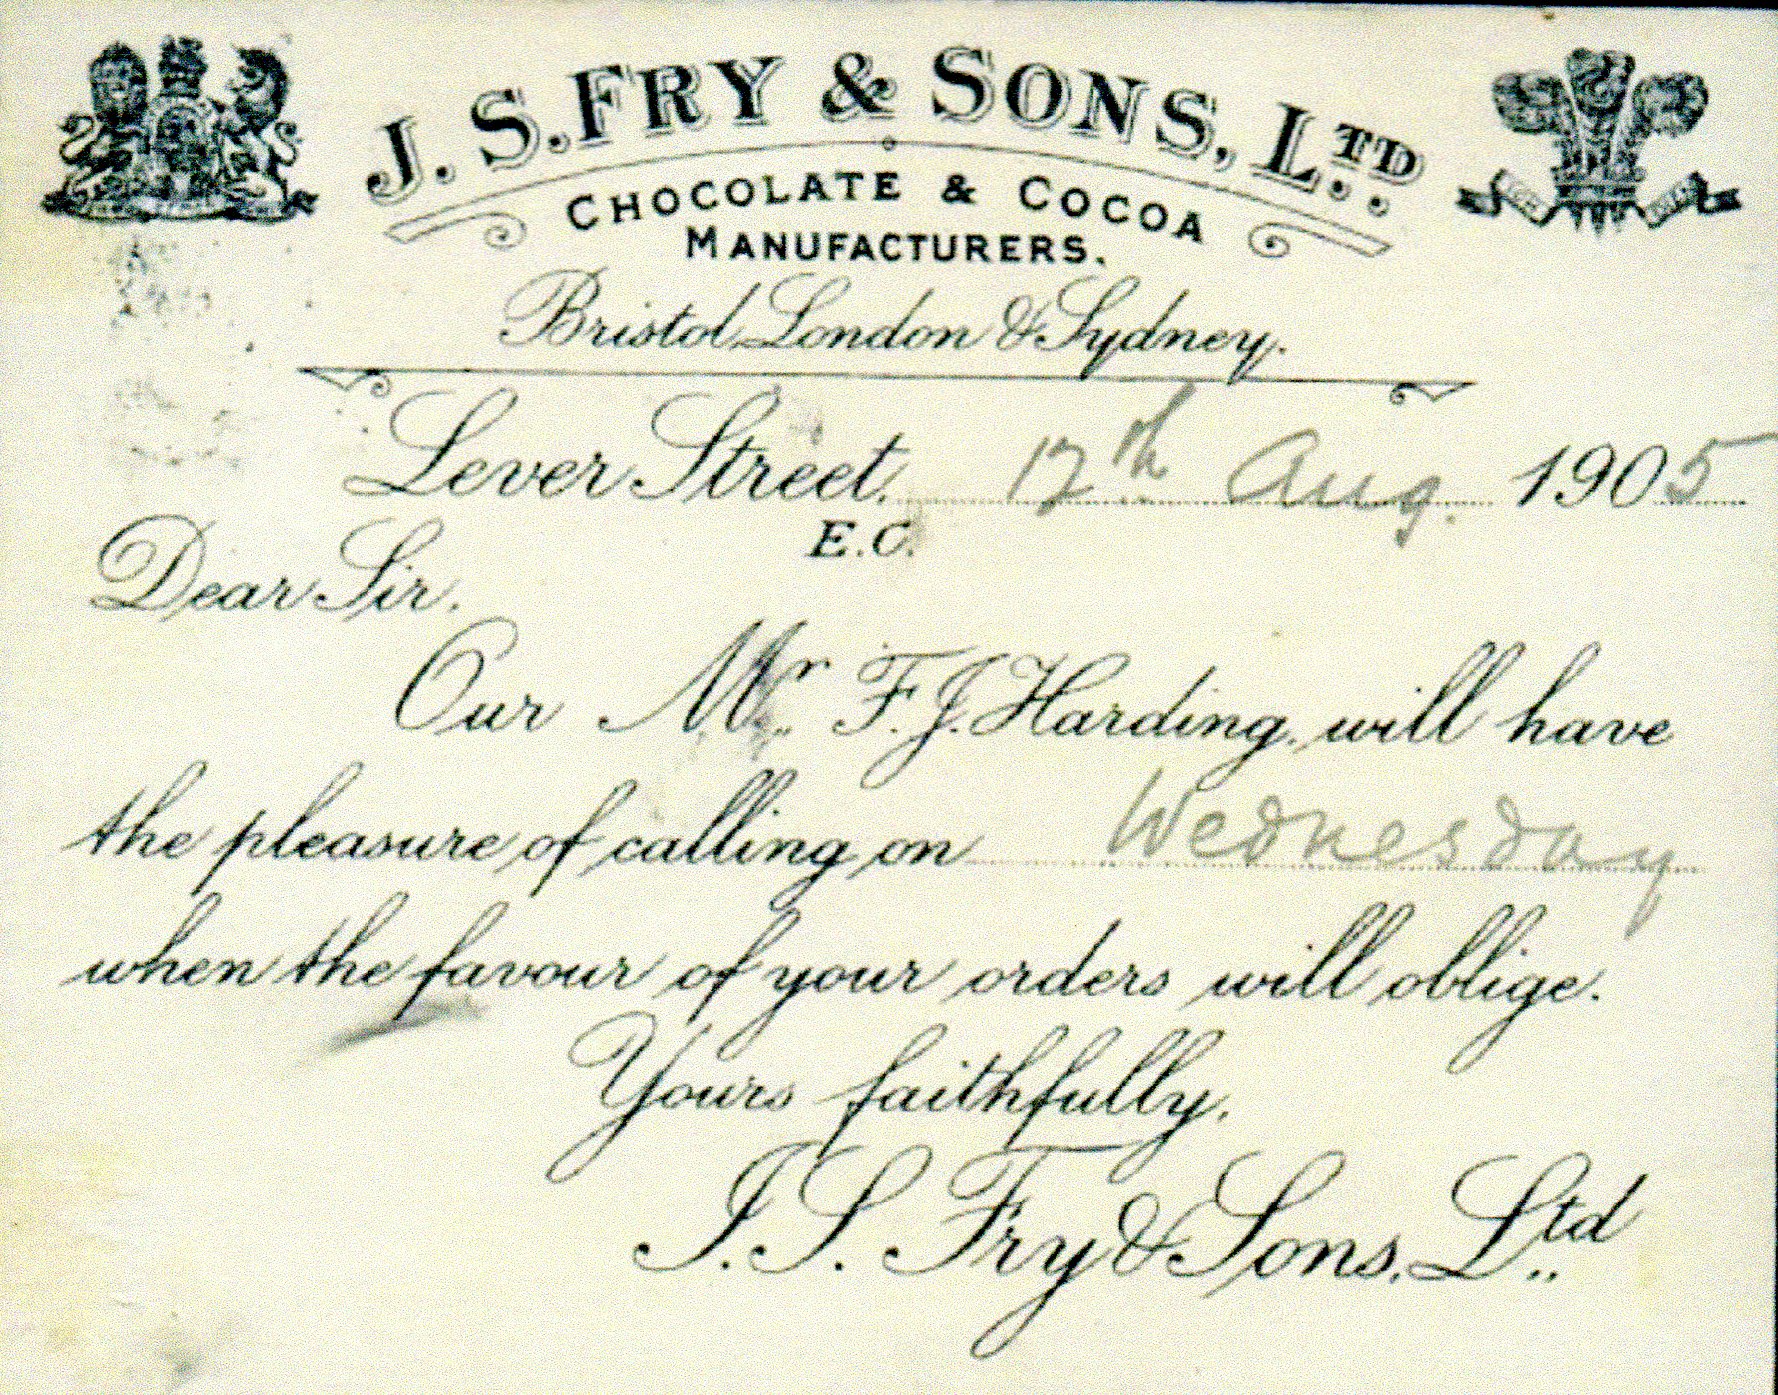 J. S. FRY & SONS, LTD.
CHOCOLATE & COCOA
MANUFACTURERS.
Bristol, London & Sydney.
Lever Street, 12th Aug. 1905
E.C.
Dear Sir.
Our Mr. F. J. Harding, will have
the pleasure of calling on Wednesday
when the favour of your orders will oblige.
Yours faithfully,
J. S. Fry & Sons, Ltd.